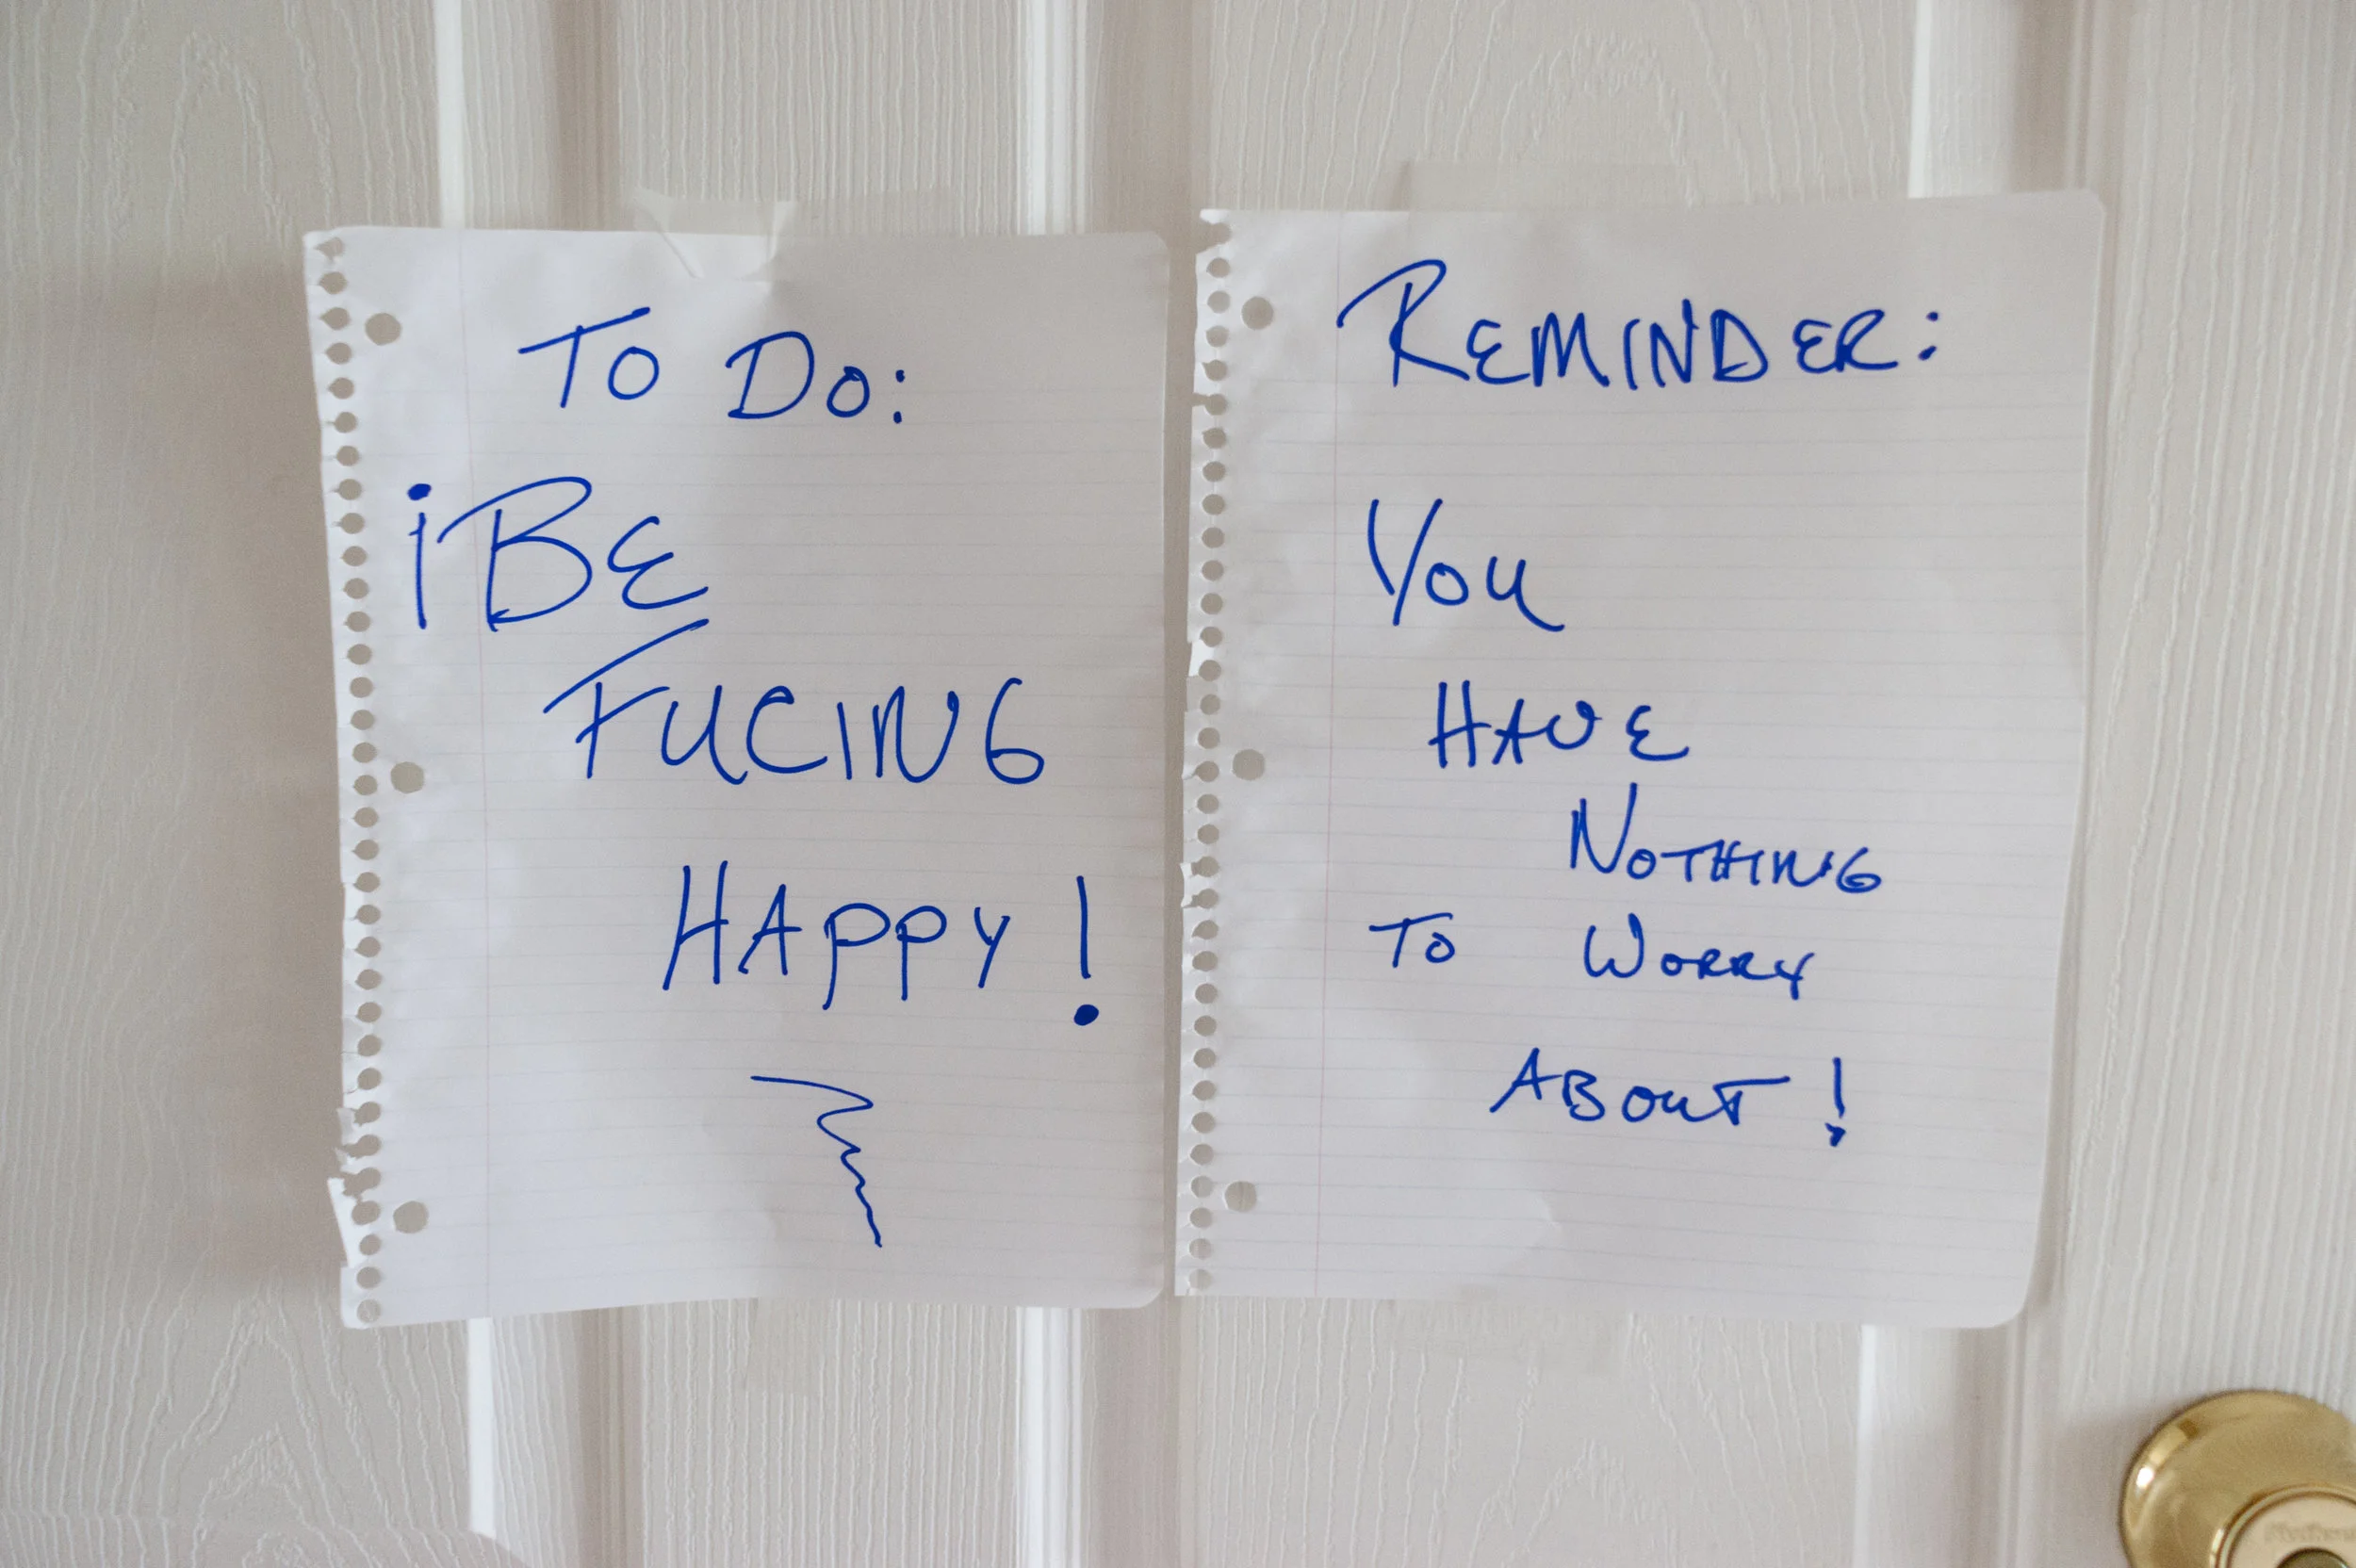 To Do:
¡BE
FUCING
HAPPY!
REMINDER:
You
HAVE
NOTHING
To WORRY
ABOUT!